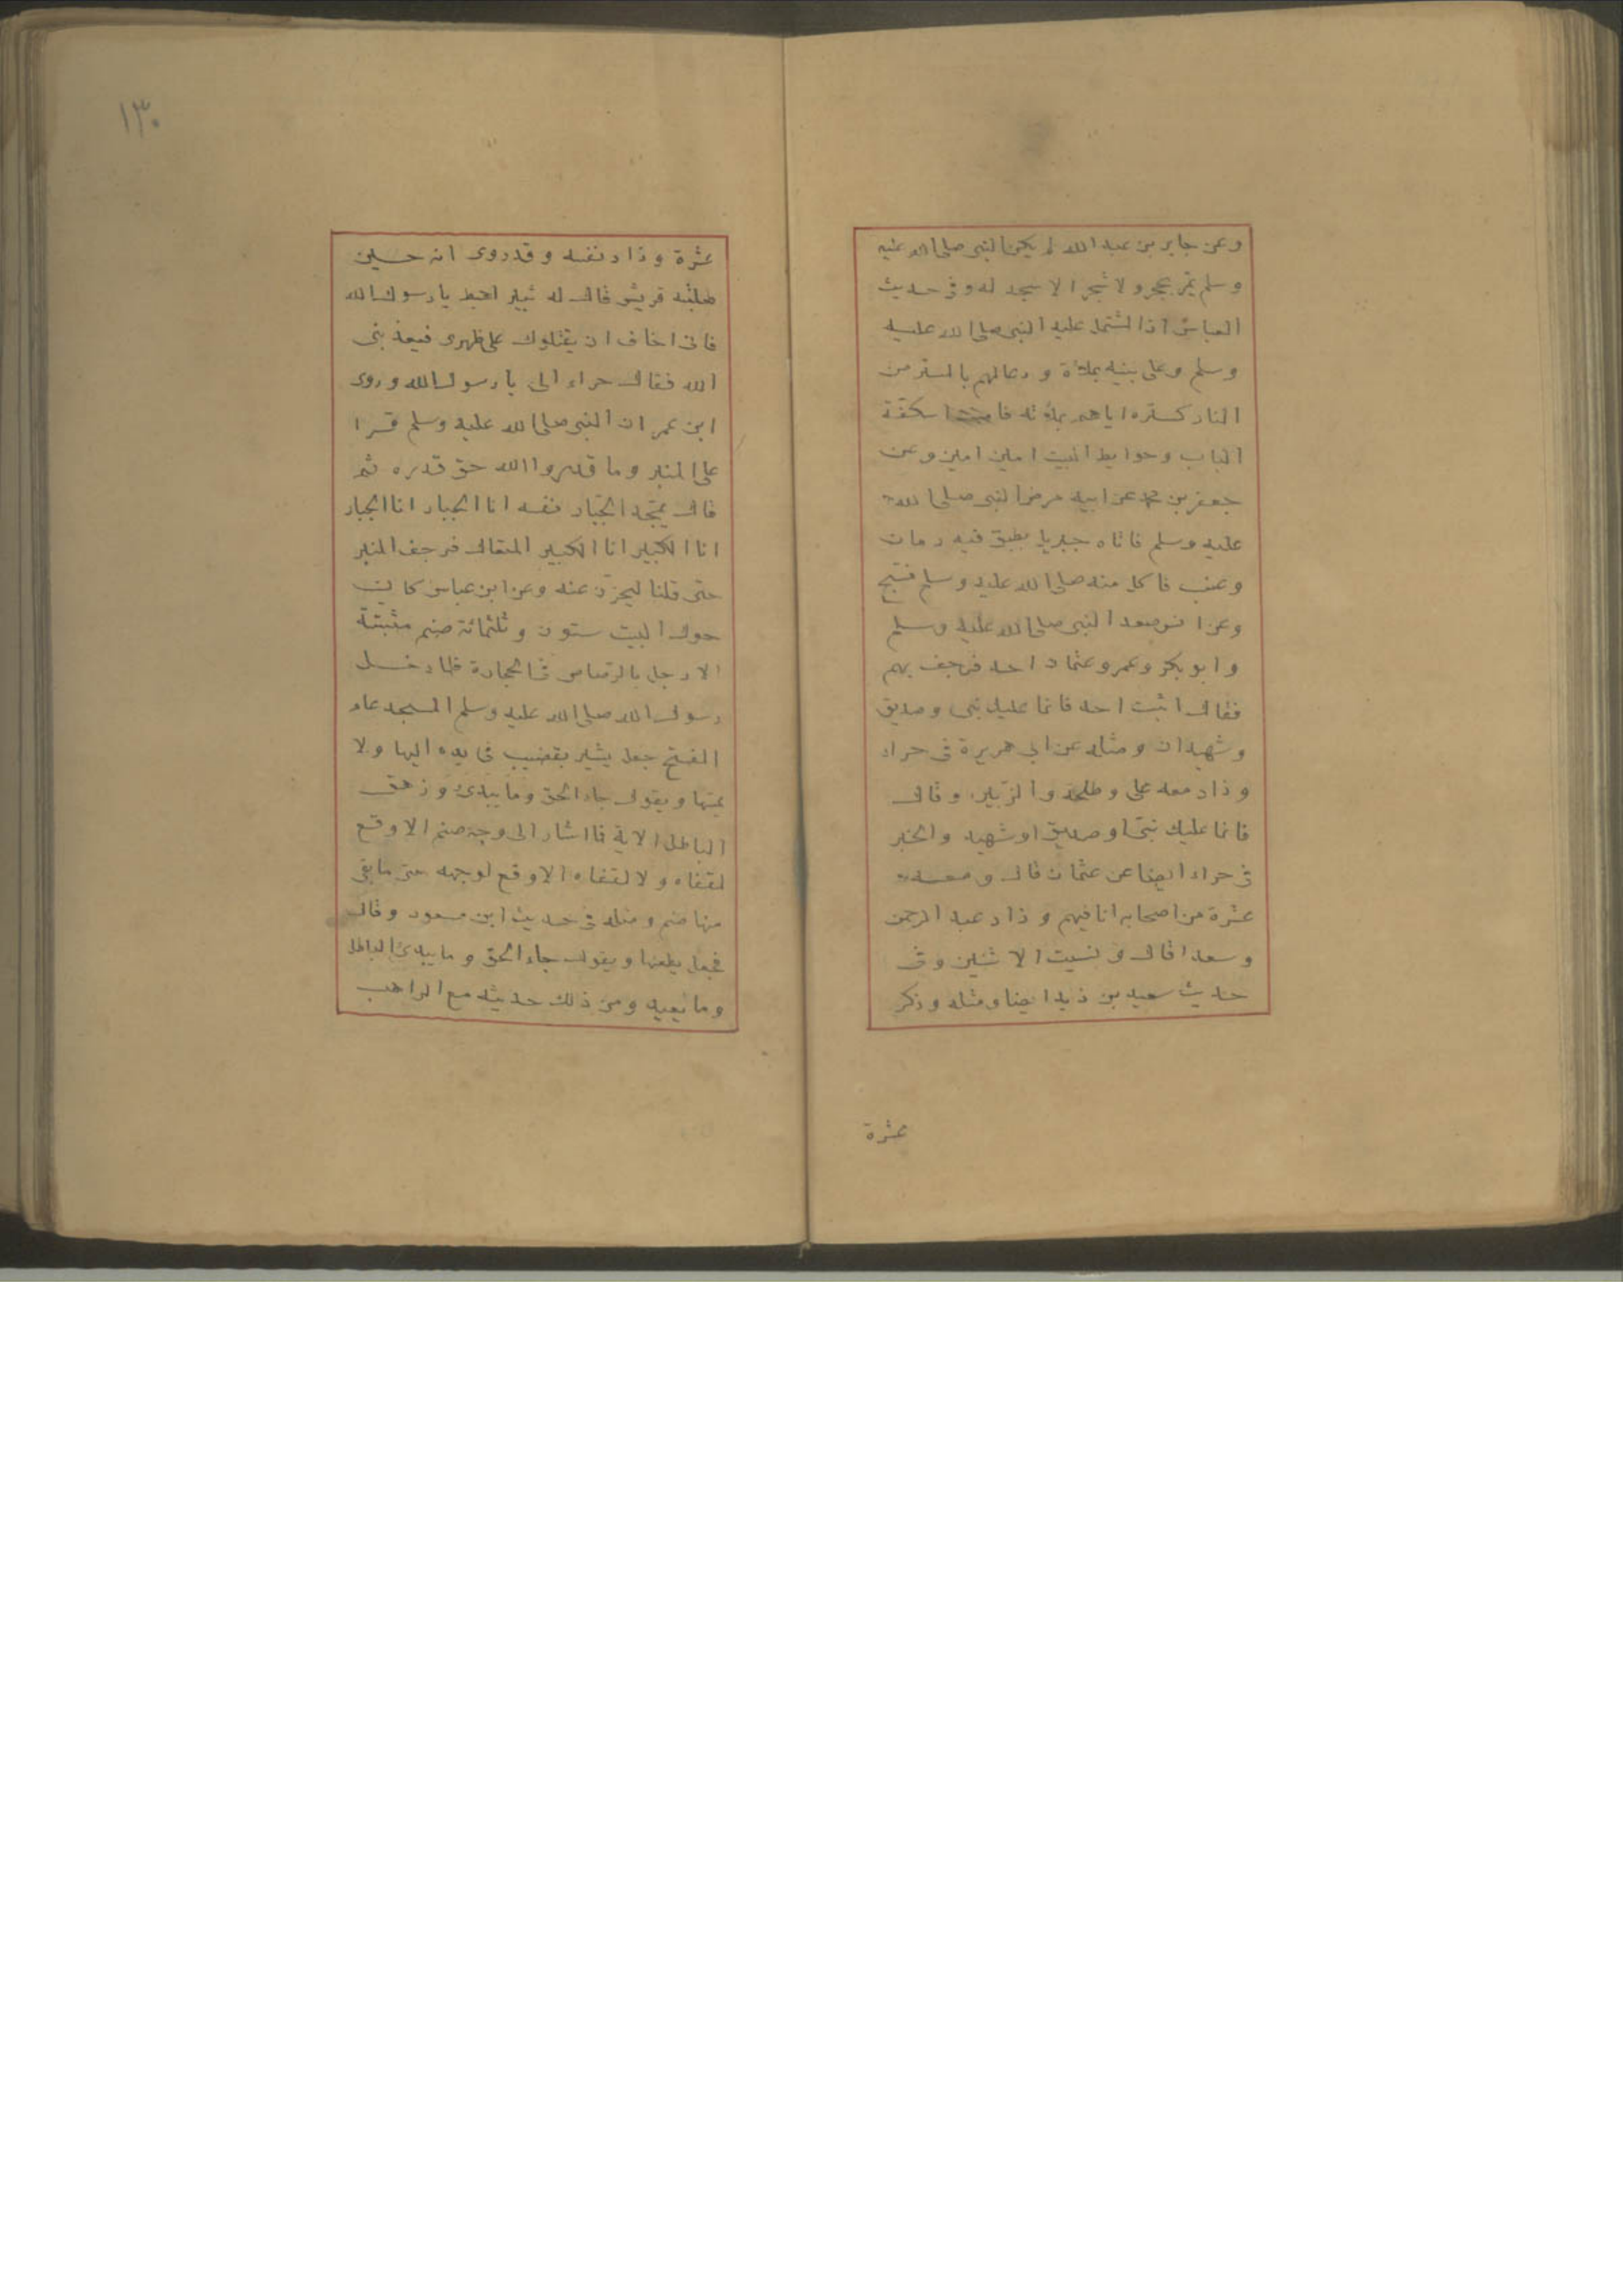 وعن جابر بن عبد الله لم يكن النبى صلى الله عليه
وسلم يمر بحجر ولا شجر الا سجد له وفى حديث
العباس اذا اشتمل عليه النبى صلى الله عليه
وسلم وعلى بنيه بملاءة ودعا لهم بالستر من
النار كستره اياهم بملاءته فامنت اسكفة
الباب وحوايط البيت امين امين وعن
جعفر بن محمد عن ابيه مرض النبى صلى الله
عليه وسلم فاتاه جبريل بطبق فيه رمان
وعنب فاكل منه صلى الله عليه وسلم فسبح
وعن انس صعد النبى صلى الله عليه وسلم
وابو بكر وعمر وعثمان احد فرجف بهم
فقال اثبت احد فانما عليك نبى وصديق
وشهيدان ومثله عن ابى هريرة فى حراء
وزاد معه على وطلحة والزبير وقال
فانما عليك نبى او صديق او شهيد والخبر
فى حراء ايضا عن عثمان قال ومعه
عشرة من اصحابه انا فيهم وزاد عبد الرحمن
وسعدا قال ونسيت الاثنين وفى
حديث سعيد بن زيد ايضا ومثله وذكر
عشرة
١٣٠
عشرة وزاد نفسه وقد روى انه حين
طلبته قريش قال له ثبير اهبط يا رسول الله
فانى اخاف ان يقتلوك على ظهرى فيعذبنى
الله فقال حراء الى يا رسول الله وروى
ابن عمر ان النبى صلى الله عليه وسلم قرا
على المنبر وما قدروا الله حق قدره ثم
قال يمجد الجبار نفسه انا الجبار انا الجبار
انا الكبير انا الكبير المتعال فرجف المنبر
حتى قلنا ليخرن عنه وعن ابن عباس كانت
حول البيت ستون وثلثمائة صنم مثبتة
الارجل بالرصاص فى الحجارة فلما دخل
رسول الله صلى الله عليه وسلم المسجد عام
الفتح جعل يشير بقضيب فى يده اليها ولا
يمسها ويقول جاء الحق وما يبدئ وزهق
الباطل الاية فما اشار الى وجه صنم الا وقع
لقفاه ولا لقفاه الا وقع لوجهه حتى ما بقى
منها صنم ومثله فى حديث ابن مسعود وقال
فجعل يطعنها ويقول جاء الحق وما يبدئ الباطل
وما يعيد ومن ذلك حديثه مع الراهب